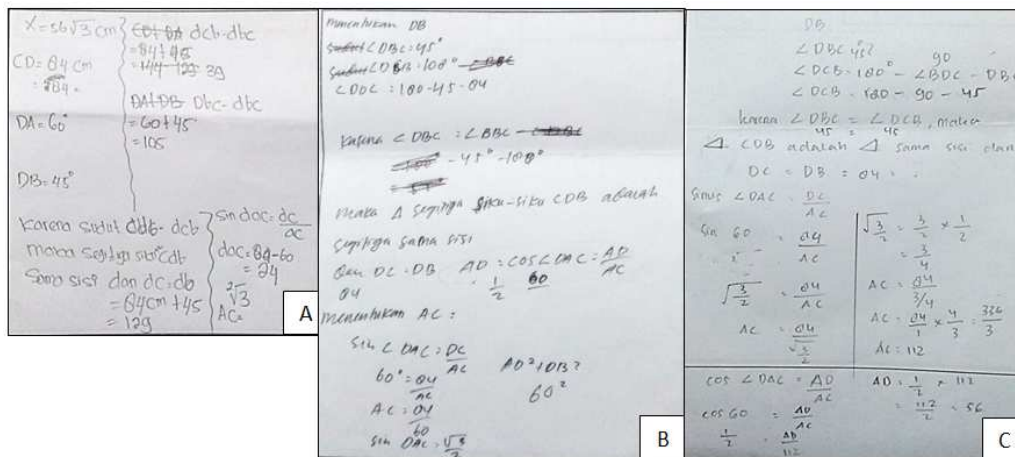 X = 56√3 cm
CD = 84 cm
= 84
DA = 60°
DB = 45°
dcb - dbc
= 84 + 45
= 144 129 39
DA + DB Dbc - dbc
= 60 + 45
= 105
Karena sudut dcb
maka segitiga cdb
Sama sisi dan dc = db
= 84 cm + 45
= 129
sin dac = dc/ac
dac = 84 - 60
= 24
√3
AC =
A
menentukan DB
sudut ∠DBC = 45°
∠DBC = 180 - 45 - 84
Karena ∠DBC = ∠BBC
- 45° - 180°
maka Δ segitiga siku-siku CDB adalah
segitiga sama sisi
Dan DC = DB
84
AD = COS ∠DAC = AD/AC
1/2 60
menentukan AC =
sin ∠DAC = DC/AC
60° = 84/AC
AC = 84/60
sin DAC = √3/2
AD² + DB²
60²
B
DB
∠DBC 45°
90
∠DCB = 180° - ∠BDC - DBC
∠DCB = 180 - 90 - 45
karena ∠DBC = ∠DCB, maka
45 = 45
Δ CDB adalah Δ sama sisi dan
DC = DB = 84
sinus ∠DAC = DC/AC
sin 60 = 84/AC
√3/2 = 84/AC
AC = 84/√3/2
√3/2 = 3/2 × 1/2
= 3/4
AC = 84/3/4
AC = 84/1 × 4/3 = 336/3
AC = 112
cos ∠DAC = AD/AC
cos 60 = AD/AC
1/2 = AD/112
AD = 1/2 × 112
= 112/2 = 56
C